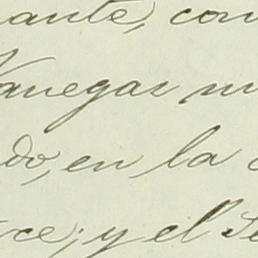 ante, con
Vanegas m
do, en la
ce; y el Se